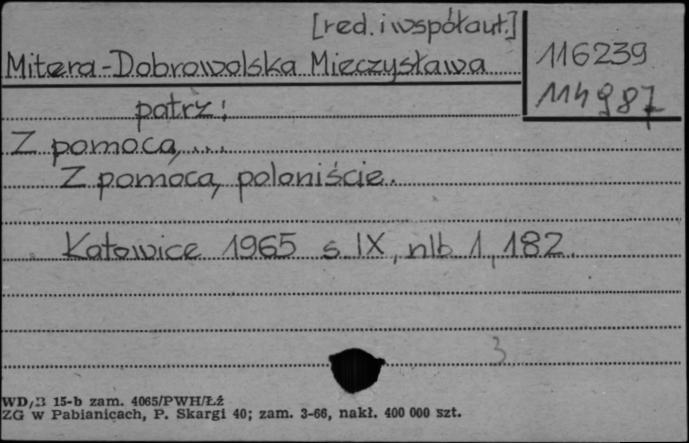 [red. i współaut.]
Mitera-Dobrowolska Mieczysława
116239
114987
patrz:
Z pomocą...
Z pomocą poloniście.
Katowice 1965 s. IX, nlb 1, 182.
3
WD/B 15-b zam. 4065/PWH/Łż
ZG w Pabianicach, P. Skargi 40; zam. 3-66, nakł. 400 000 szt.